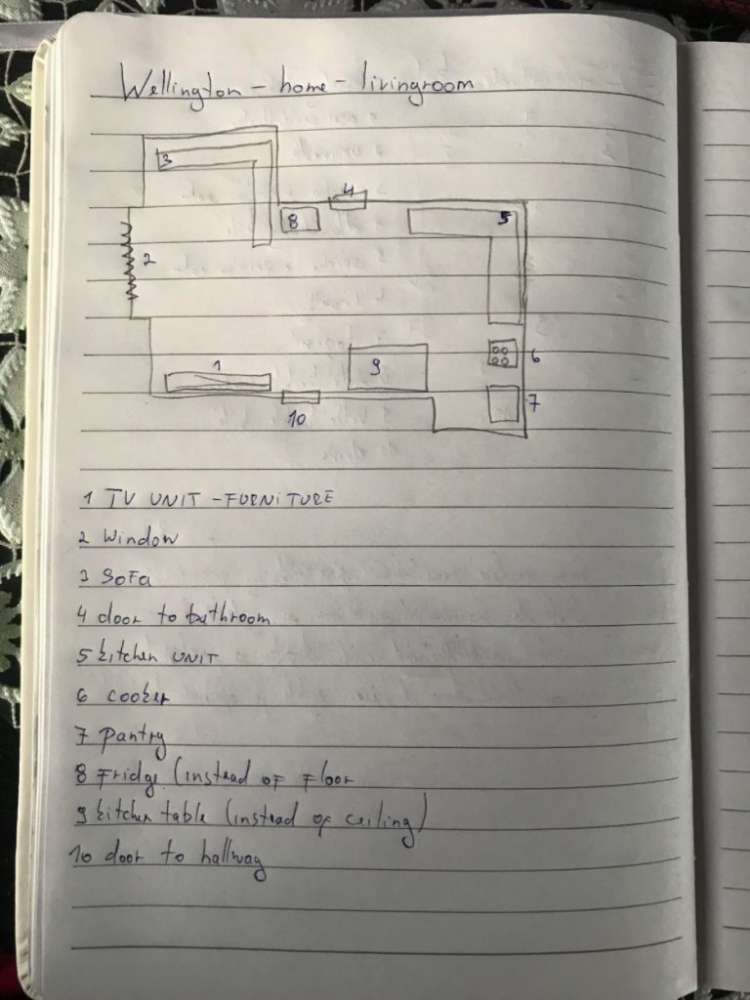 Wellington - home - livingroom
3
4
8
5
2
1
9
6
7
10
1 TV UNIT - FURNITURE
2 Window
3 SOFA
4 door to bathroom
5 kitchen UNIT
6 cooker
7 pantry
8 Fridge (instead of Floor
9 kitchen table (instead of ceiling)
10 door to hallway